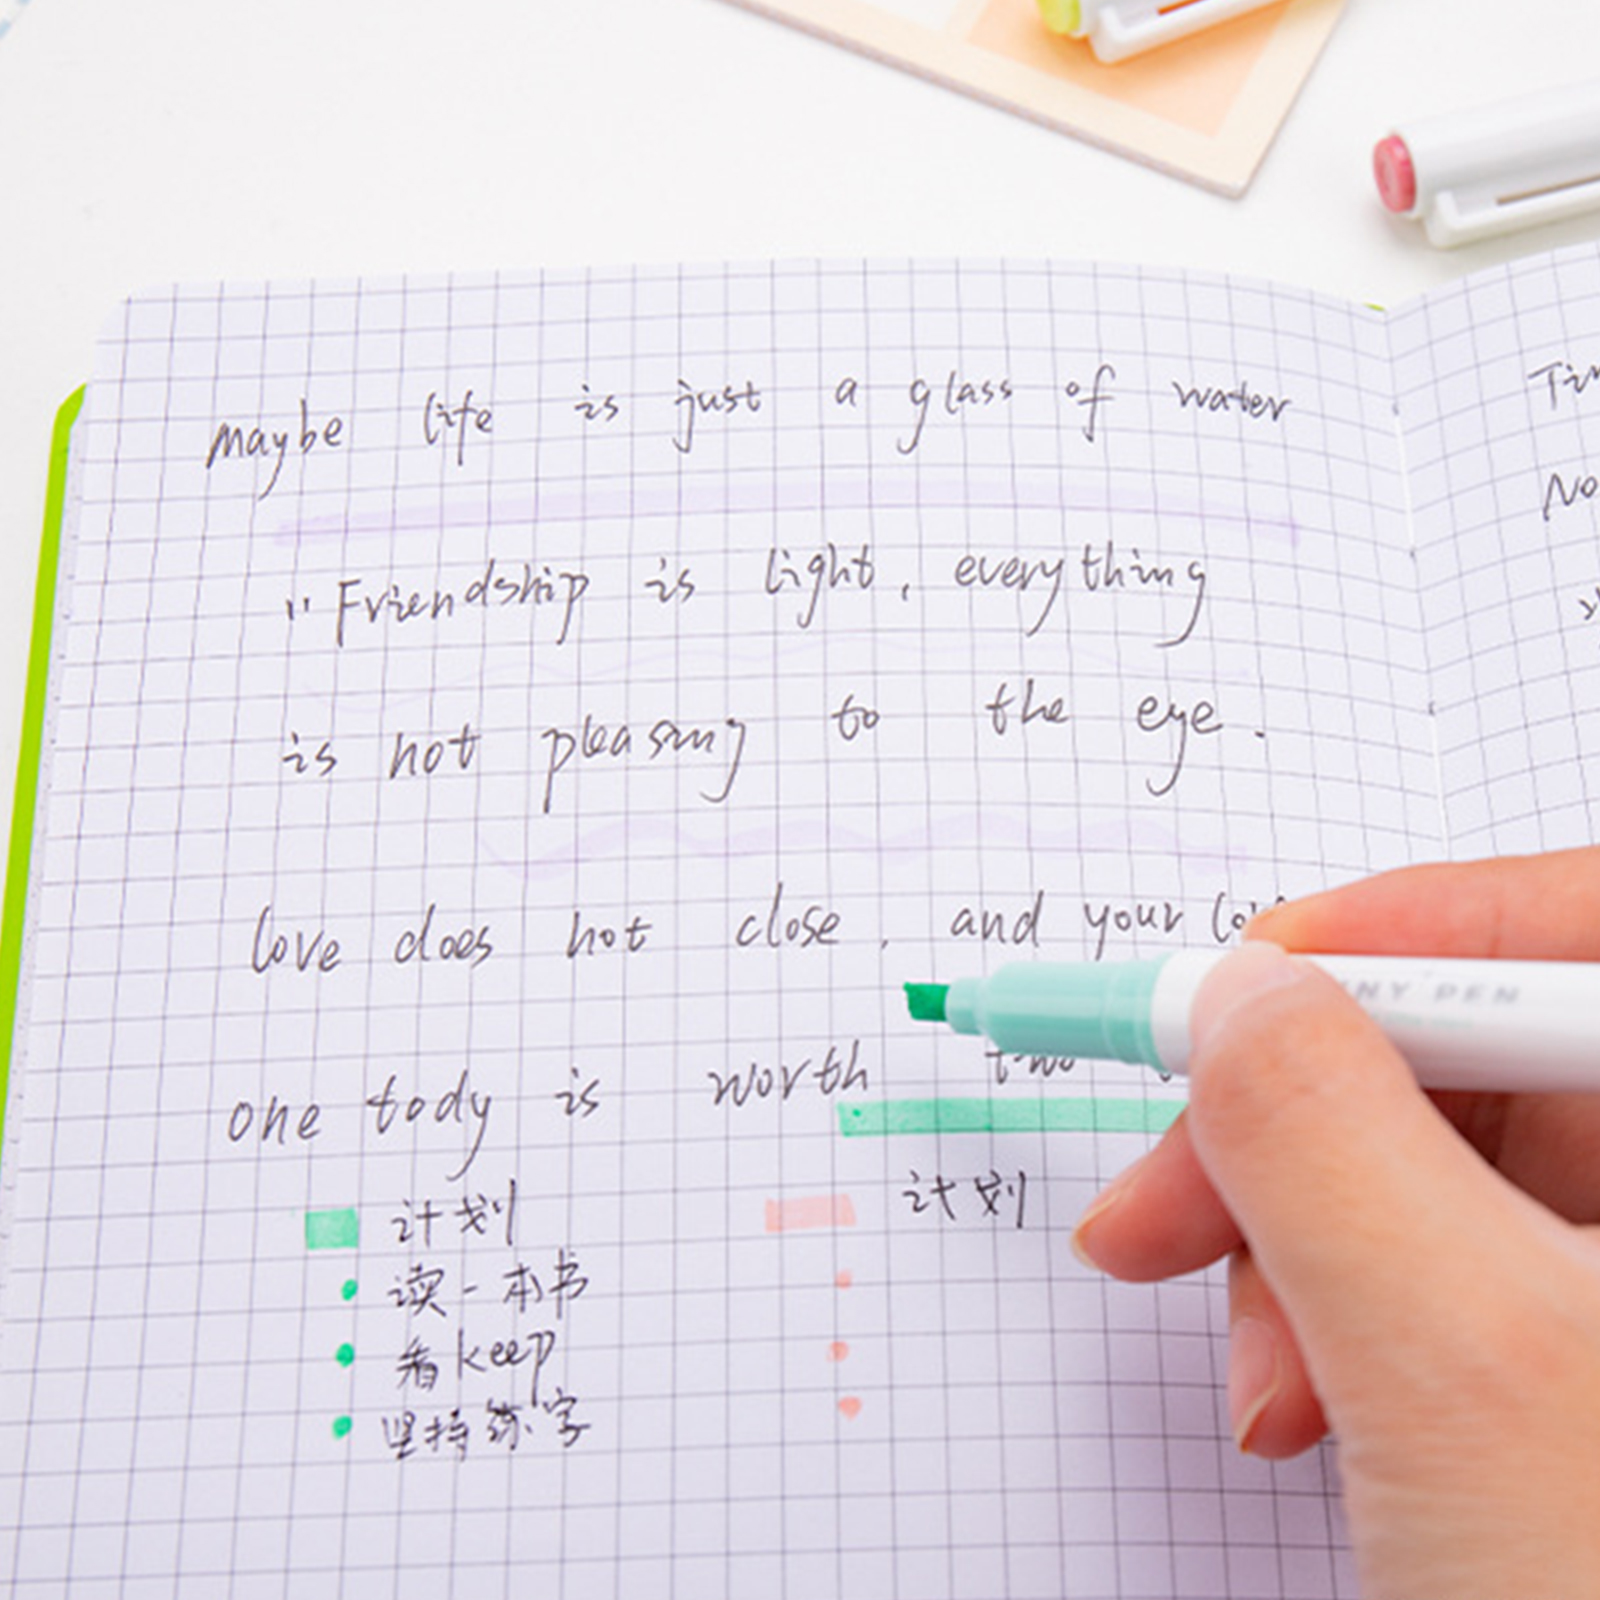 maybe life is just a glass of water
"Friendship is light, everything
is not pleasing to the eye.
love does not close, and your
one tody is worth two
计划
读一本书
看keep
坚持练字
计划
PEN